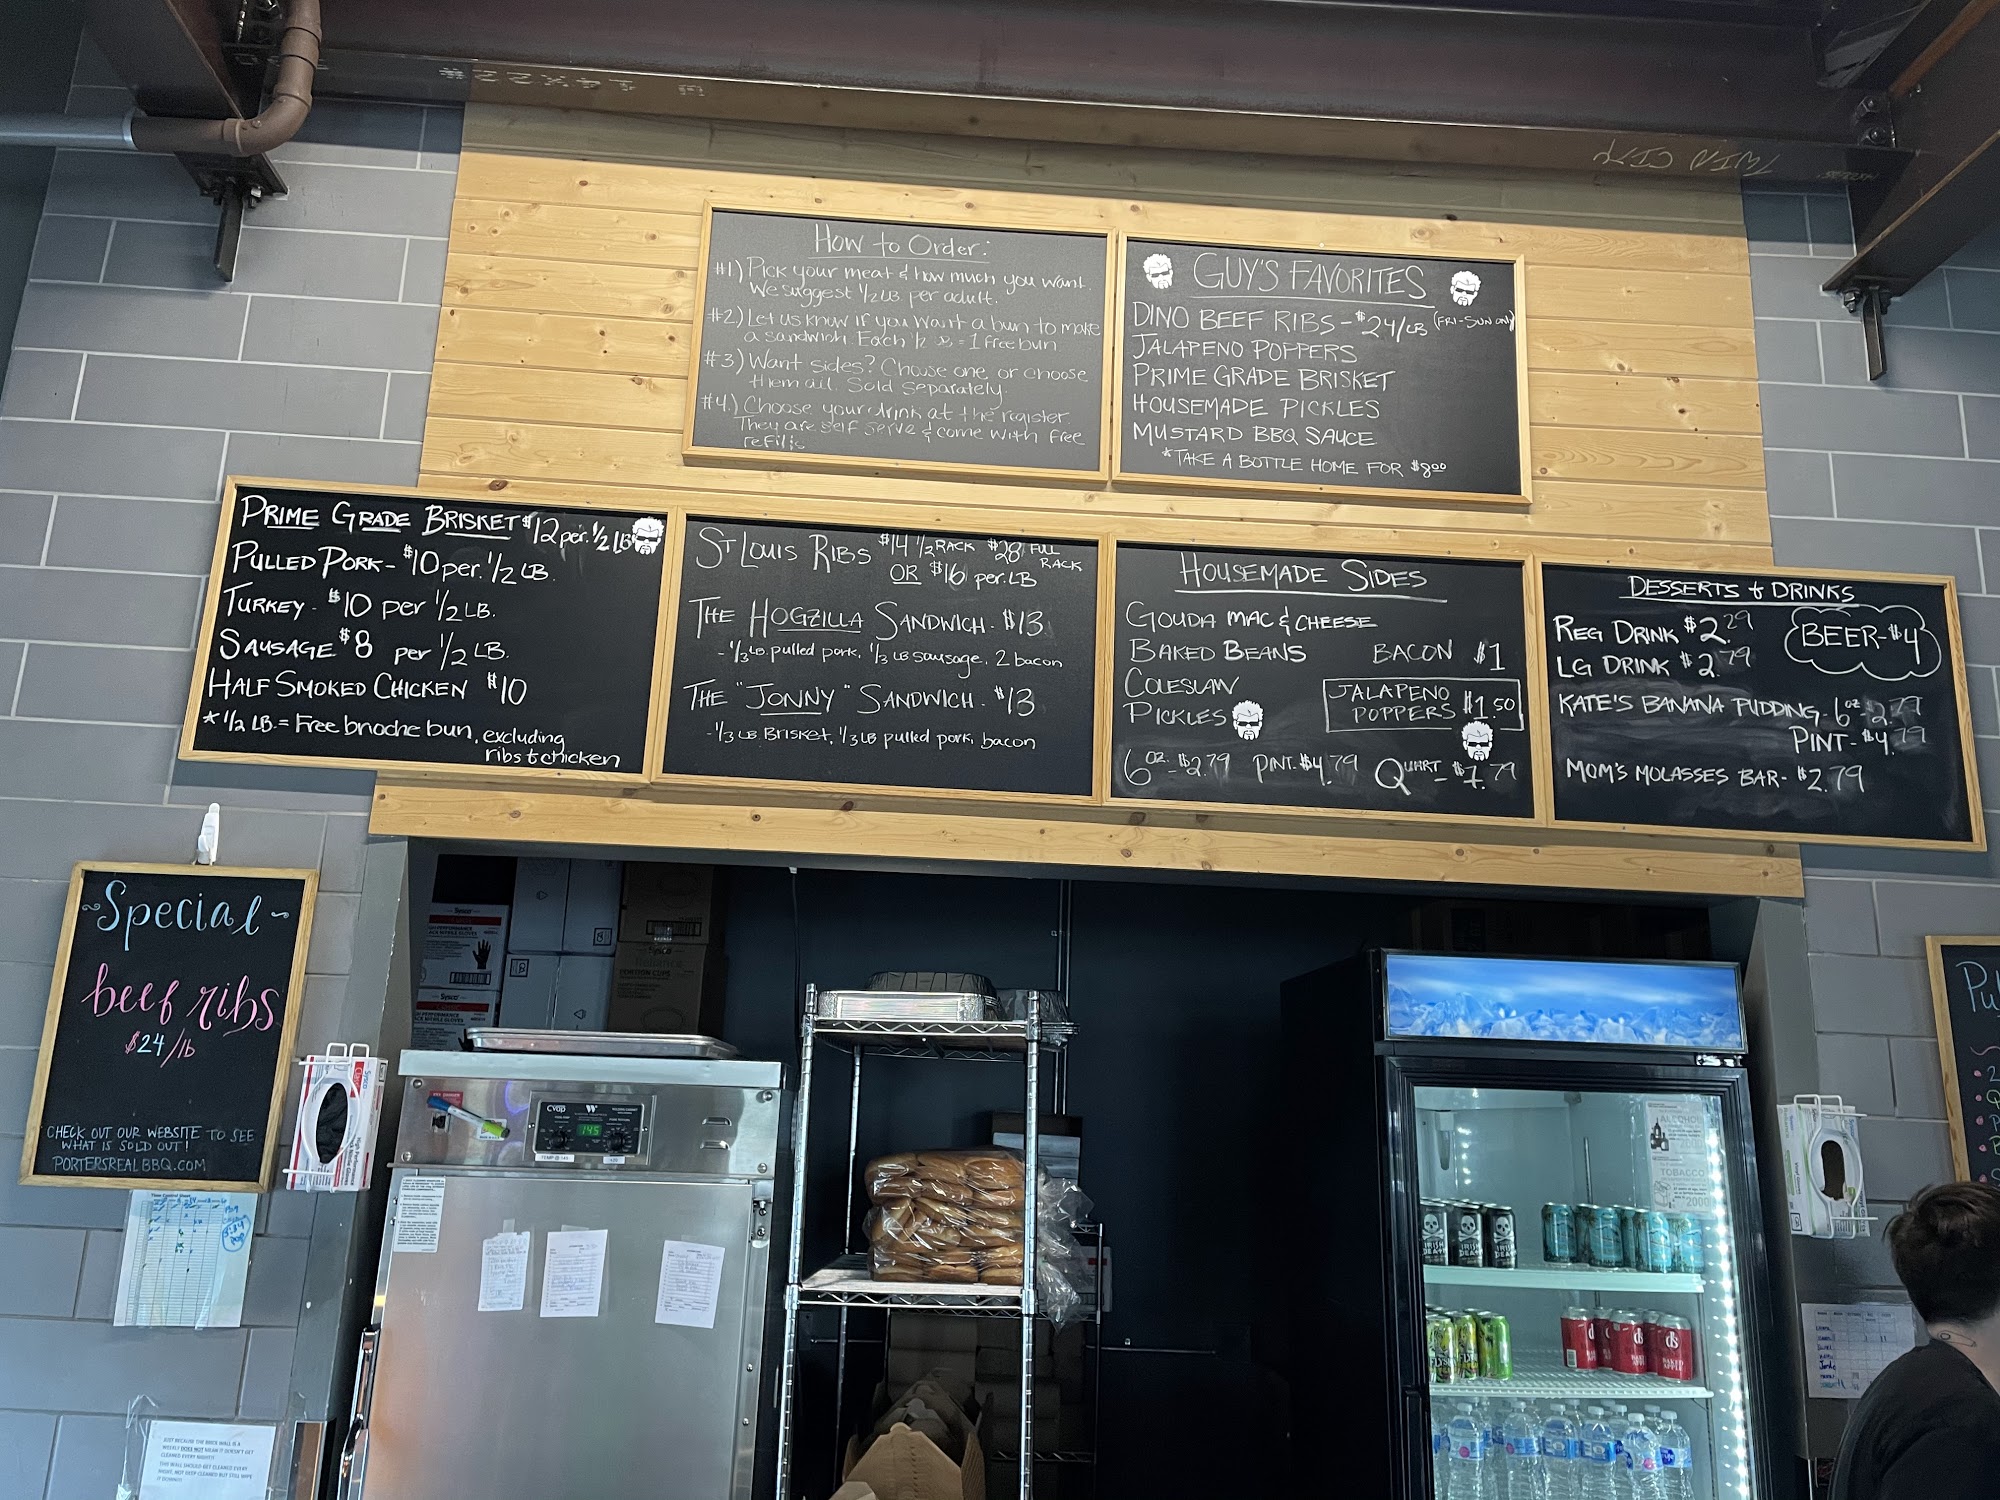 How to Order:
#1) Pick your meat & how much you want.
We suggest 1/2 LB. per adult.
#2) Let us know if you want a bun to make
a sandwich. Each 1/2 LB = 1 free bun
#3) Want sides? Choose one or choose
them all. Sold separately.
#4.) Choose your drink at the register.
They are self serve & come with free
refills
GUY'S FAVORITES
DINO BEEF RIBS - $24/LB (FRI-SUN ONLY)
JALAPENO POPPERS
PRIME GRADE BRISKET
HOUSEMADE PICKLES
MUSTARD BBQ SAUCE
*TAKE A BOTTLE HOME FOR $8.00
PRIME GRADE BRISKET $12 per. 1/2 LB
PULLED PORK - $10 per. 1/2 LB.
TURKEY - $10 per 1/2 LB.
SAUSAGE $8 per 1/2 LB.
HALF SMOKED CHICKEN $10
* 1/2 LB. = Free brioche bun, excluding
ribs & chicken
ST LOUIS RIBS $14 1/2 RACK $28 FULL RACK
OR $16 per. LB
THE HOGZILLA SANDWICH - $13
- 1/3 LB. pulled pork, 1/3 LB sausage, 2 bacon
THE "JONNY" SANDWICH - $13
- 1/3 LB. Brisket, 1/3 LB pulled pork, bacon
HOUSEMADE SIDES
GOUDA MAC & CHEESE
BAKED BEANS BACON $1
COLESLAW
PICKLES
JALAPENO
POPPERS $1.50
6 OZ. - $2.79 PINT - $4.79 QUART - $7.79
DESSERTS & DRINKS
REG DRINK $2.29
LG DRINK $2.79
BEER - $4
KATE'S BANANA PUDDING - 6oz - 2.79
PINT - $4.79
MOM'S MOLASSES BAR - $2.79
Special
beef ribs
$24/lb
CHECK OUT OUR WEBSITE TO SEE
WHAT IS SOLD OUT!
PORTERSREALBBQ.COM
Sysco
Sysco
Reliance
PORTION CUPS
Cvap
145
ALCOHOL
TOBACCO
IRISH
DEATH
BAKED
APPLE
JUST BECAUSE THE BRICK WALL IS A
WEEKLY DOES NOT MEAN IT DOESN'T GET
CLEANED EVERY NIGHT!!
THIS WALL SHOULD GET CLEANED EVERY
NIGHT, NOT DEEP CLEANED BUT STILL WIPE
IT DOWN!!!